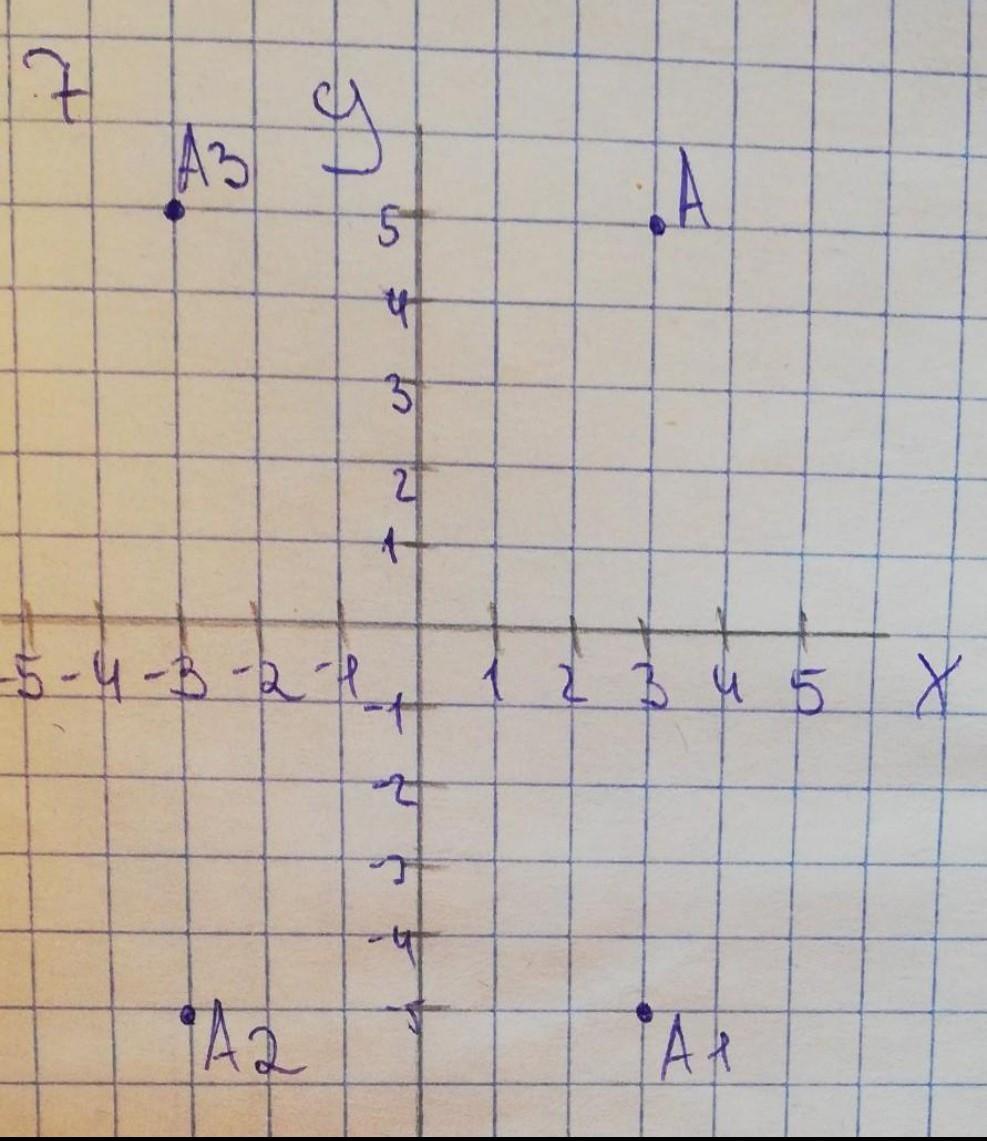 7
y
A3
A
5
4
3
2
1
-5 -4 -3 -2 -1 1 2 3 4 5 X
-1
-2
-3
-4
-5
A2
A1